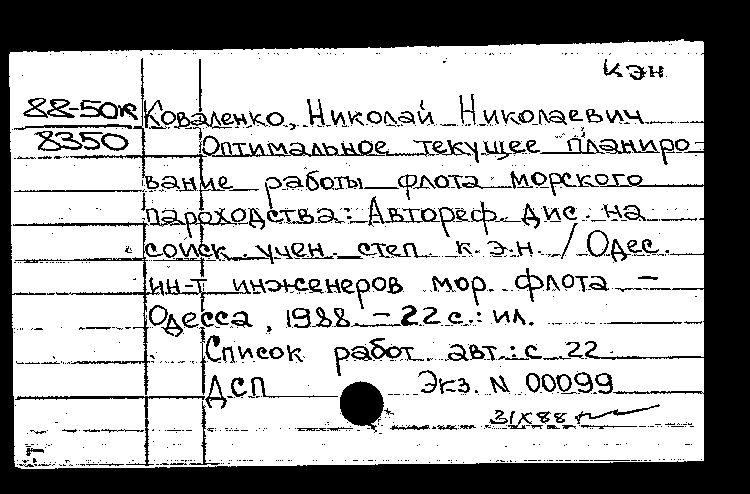 кэн
88-50к Коваленко, Николай Николаевич
8350 Оптимальное текущее планиро-
вание работы флота морского
пароходства: Автореф. дис. на
соиск. учен. степ. к.э.н. / Одес.
ин-т инженеров мор. флота –
Одесса, 1988. – 22 с.: ил.
Список работ авт.: с 22
ДСП Экз. N 00099
31X88